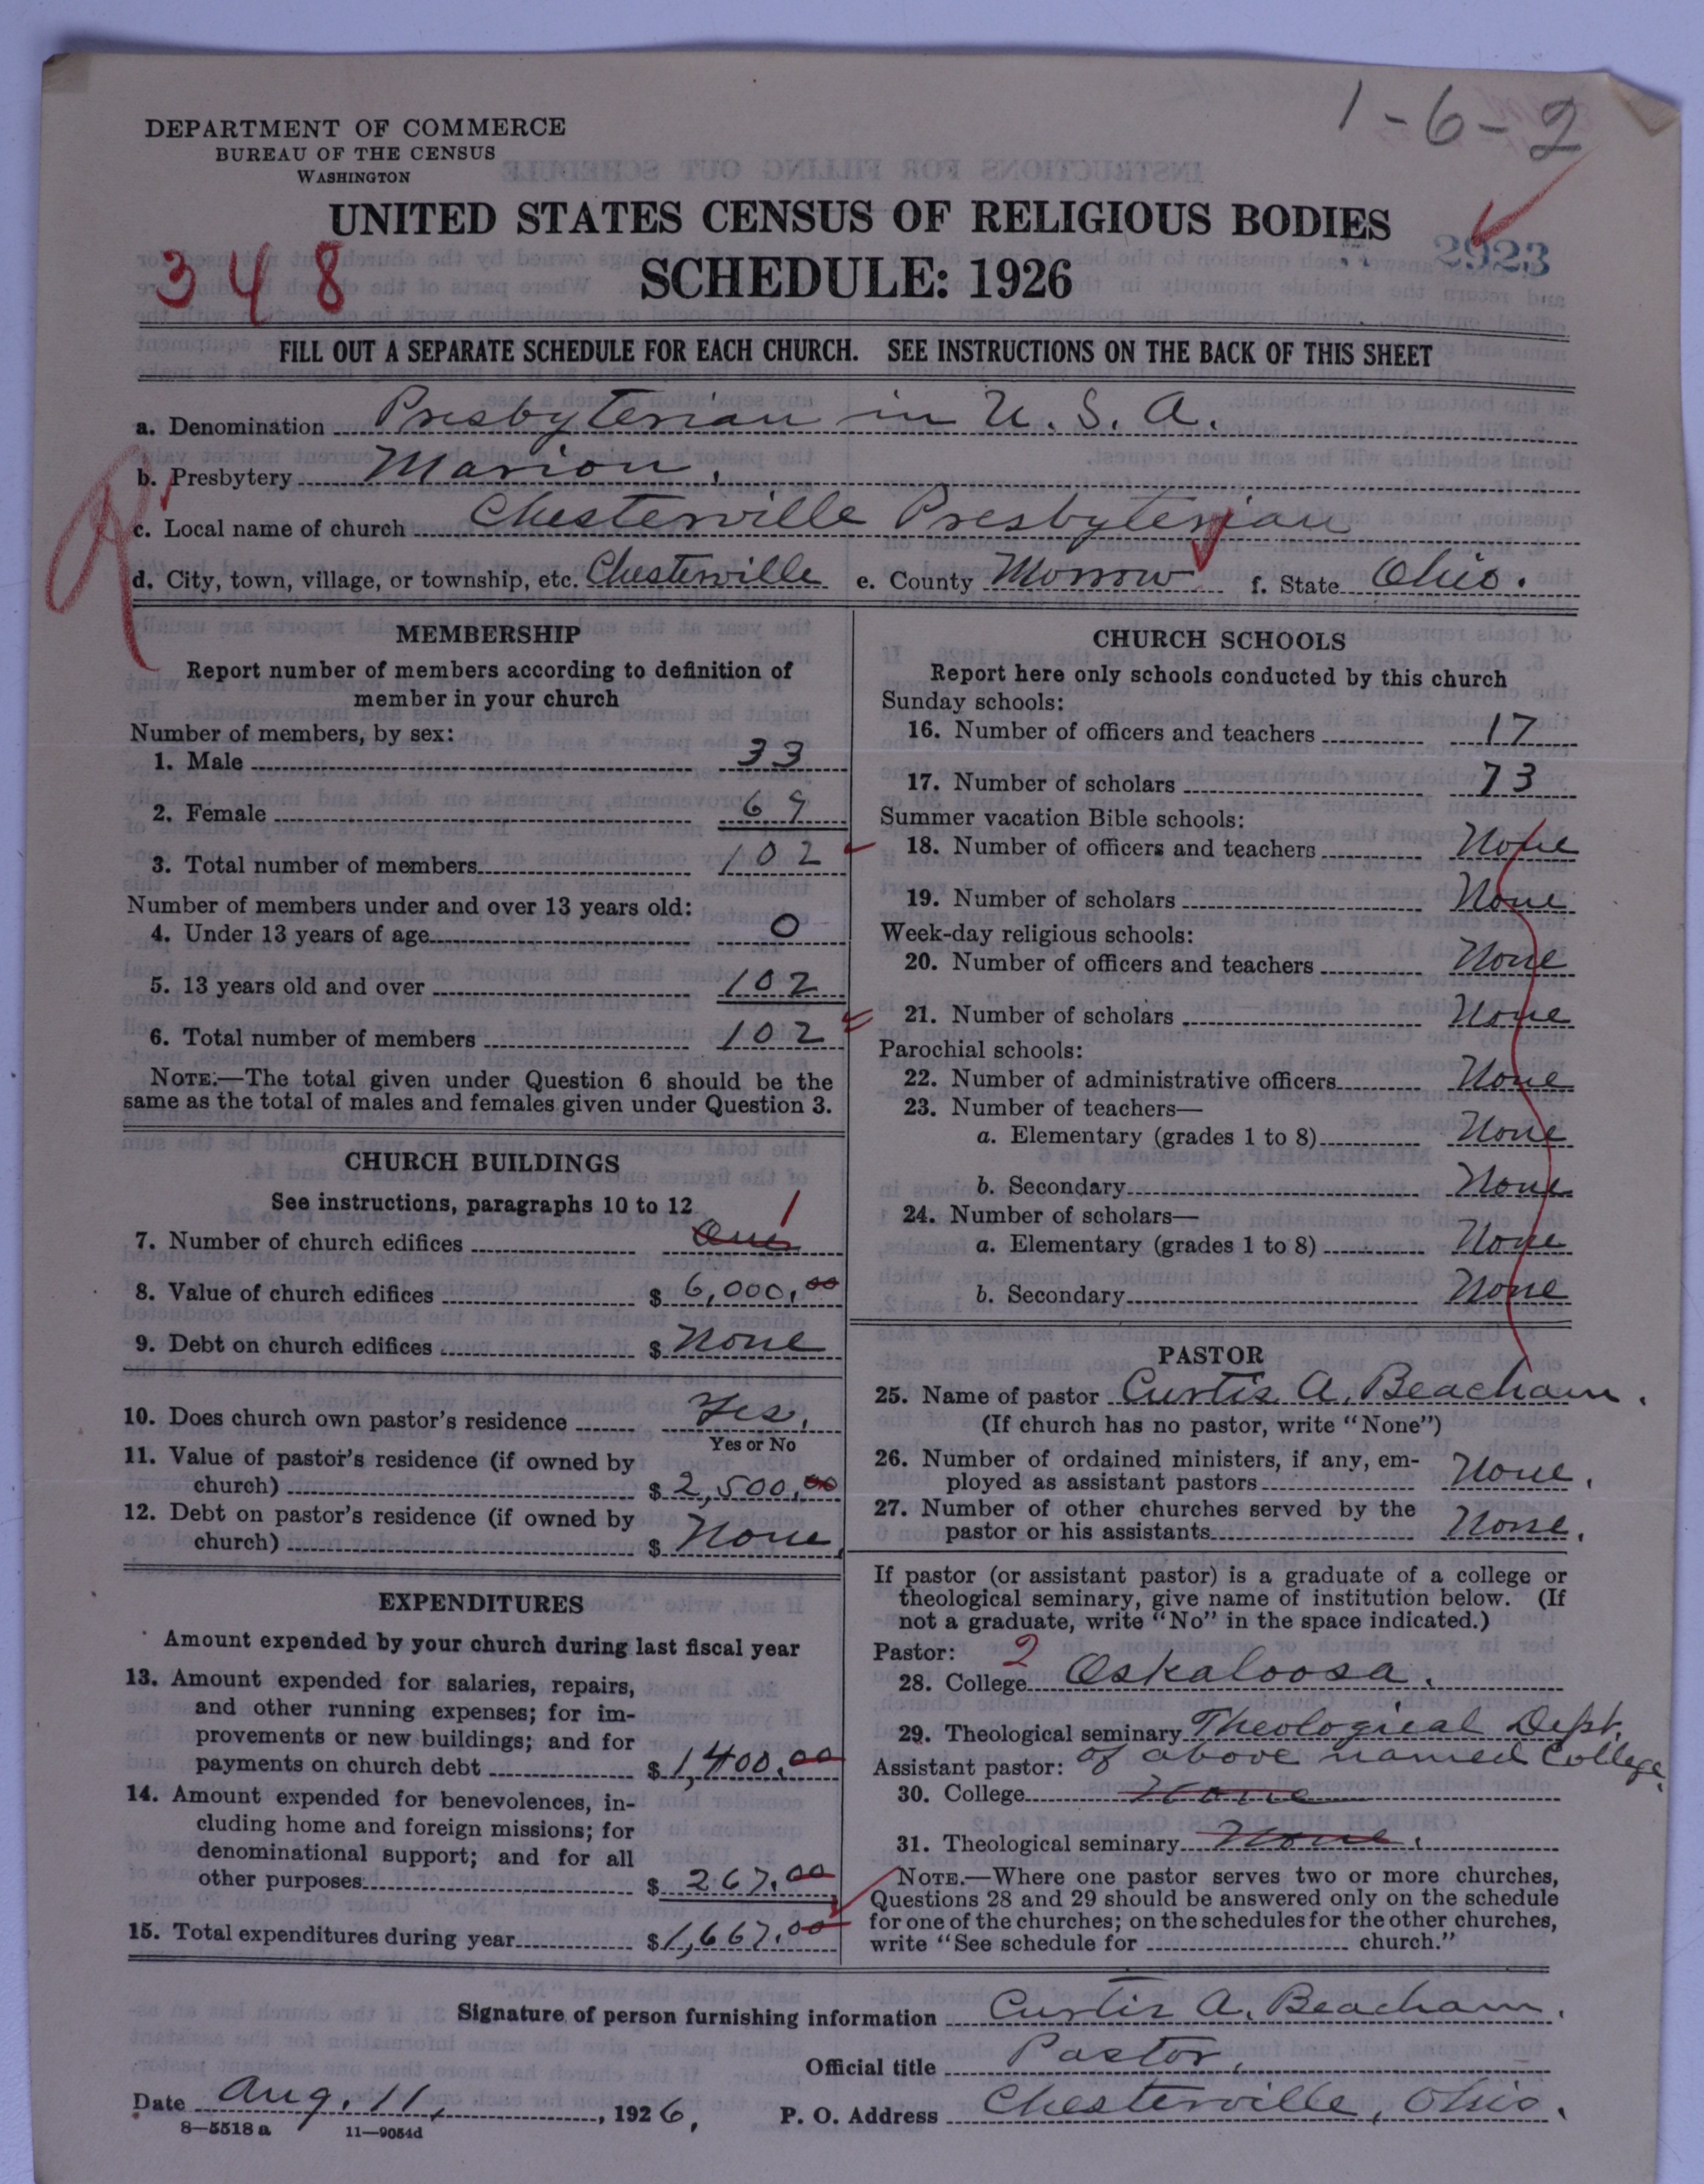 1-6-2
DEPARTMENT OF COMMERCE
BUREAU OF THE CENSUS
WASHINGTON
UNITED STATES CENSUS OF RELIGIOUS BODIES
SCHEDULE: 1926
348
2923
FILL OUT A SEPARATE SCHEDULE FOR EACH CHURCH. SEE INSTRUCTIONS ON THE BACK OF THIS SHEET
a. Denomination Presbyterian in U. S. A.
b. Presbytery Marion.
c. Local name of church Chesterville Presbyterian
d. City, town, village, or township, etc. Chesterville e. County Morrow f. State Ohio.
MEMBERSHIP
Report number of members according to definition of
member in your church
Number of members, by sex:
1. Male 33
2. Female 69
3. Total number of members 102
Number of members under and over 13 years old:
4. Under 13 years of age 0
5. 13 years old and over 102
6. Total number of members 102
NOTE.—The total given under Question 6 should be the
same as the total of males and females given under Question 3.
CHURCH BUILDINGS
See instructions, paragraphs 10 to 12
7. Number of church edifices One 1
8. Value of church edifices $ 6,000.00
9. Debt on church edifices $ None
10. Does church own pastor's residence Yes.
Yes or No
11. Value of pastor's residence (if owned by
church) $ 2,500.00
12. Debt on pastor's residence (if owned by
church) $ None
EXPENDITURES
Amount expended by your church during last fiscal year
13. Amount expended for salaries, repairs,
and other running expenses; for im-
provements or new buildings; and for
payments on church debt $ 1,400.00
14. Amount expended for benevolences, in-
cluding home and foreign missions; for
denominational support; and for all
other purposes $ 267.00
15. Total expenditures during year $ 1,667.00
CHURCH SCHOOLS
Report here only schools conducted by this church
Sunday schools:
16. Number of officers and teachers 17
17. Number of scholars 73
Summer vacation Bible schools:
18. Number of officers and teachers None
19. Number of scholars None
Week-day religious schools:
20. Number of officers and teachers None
21. Number of scholars None
Parochial schools:
22. Number of administrative officers None
23. Number of teachers—
a. Elementary (grades 1 to 8) None
b. Secondary None
24. Number of scholars—
a. Elementary (grades 1 to 8) None
b. Secondary None
PASTOR
25. Name of pastor Curtis A. Beacham.
(If church has no pastor, write "None")
26. Number of ordained ministers, if any, em-
ployed as assistant pastors None.
27. Number of other churches served by the
pastor or his assistants None.
If pastor (or assistant pastor) is a graduate of a college or
theological seminary, give name of institution below. (If
not a graduate, write "No" in the space indicated.)
Pastor: 2
28. College Oskaloosa.
29. Theological seminary Theological Dept.
Assistant pastor: of above named College.
30. College None
31. Theological seminary None.
NOTE.—Where one pastor serves two or more churches,
Questions 28 and 29 should be answered only on the schedule
for one of the churches; on the schedules for the other churches,
write "See schedule for church."
Signature of person furnishing information Curtis A. Beacham.
Official title Pastor.
Date Aug. 11, 1926, P. O. Address Chesterville, Ohio.
8—5518 a 11—9054d